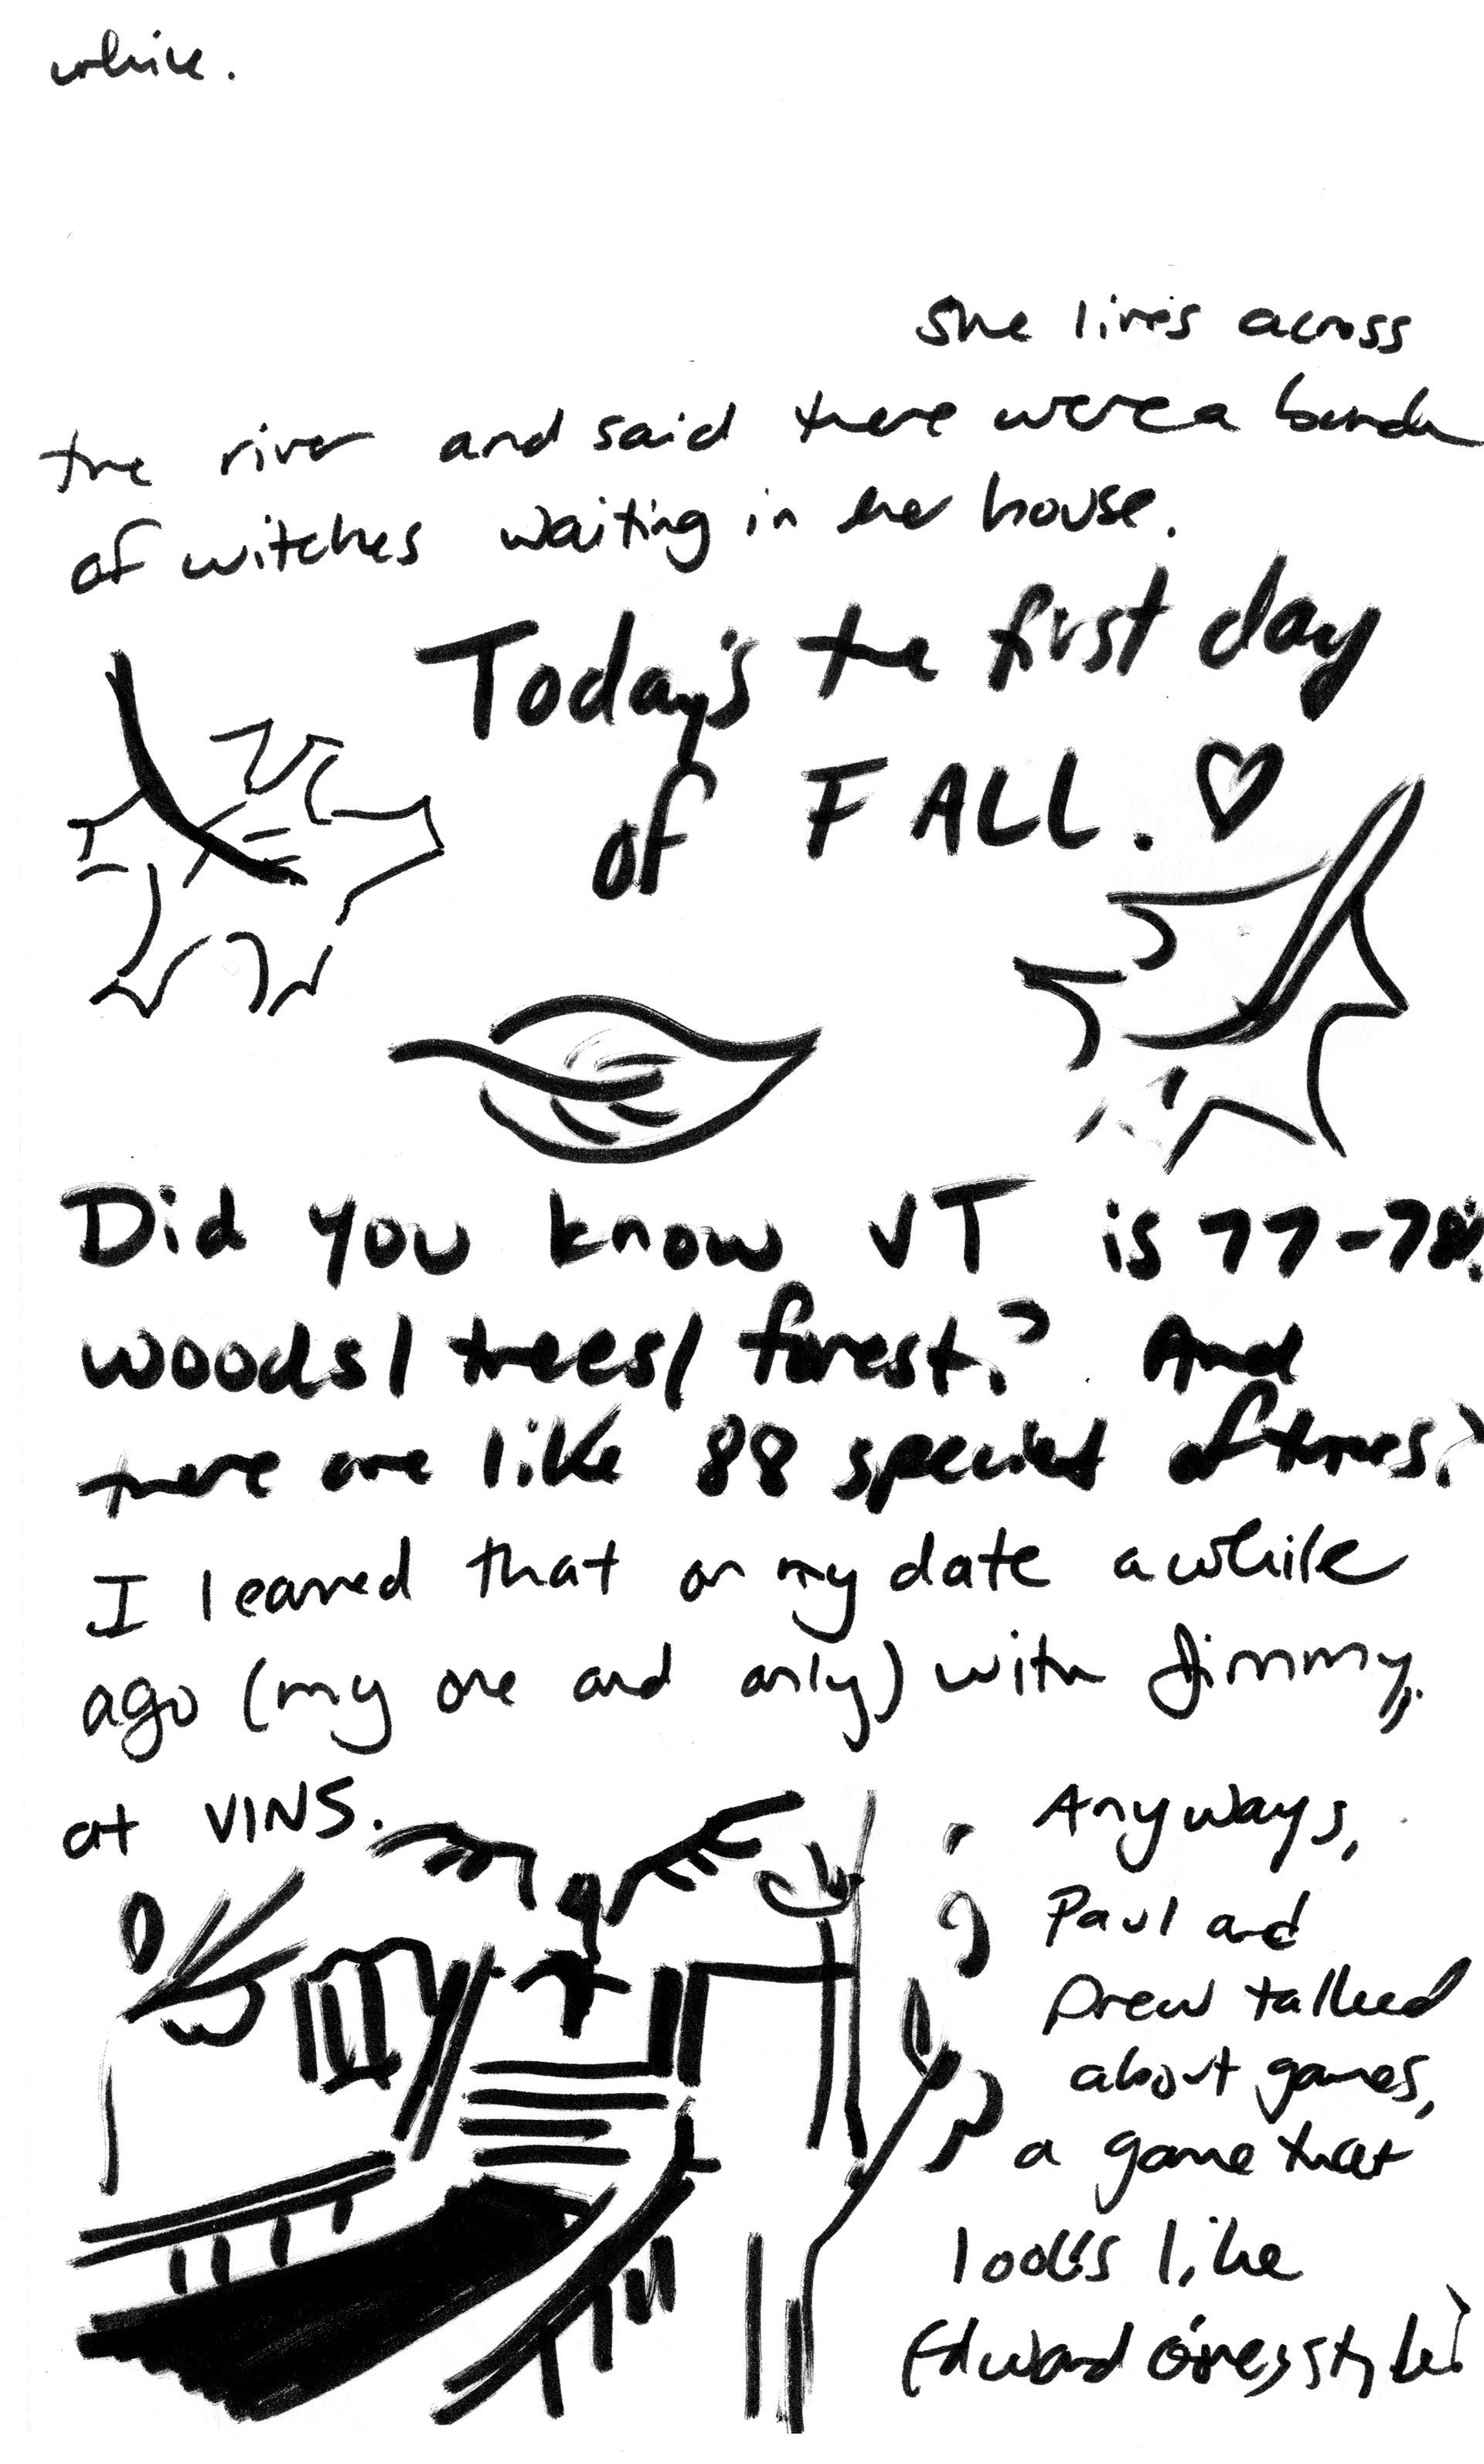 while.
She lives across
the river and said there were a bunch
of witches waiting in her house.
Today's the first day
of FALL. ♡
Did you know VT is 77-78%
woods/trees/forest? And
there are like 88 species of trees?
I learned that on my date awhile
ago (my one and only) with Jimmy,
at VINS.
Anyways,
Paul and
Drew talked
about games,
a game that
looks like
Edward style!